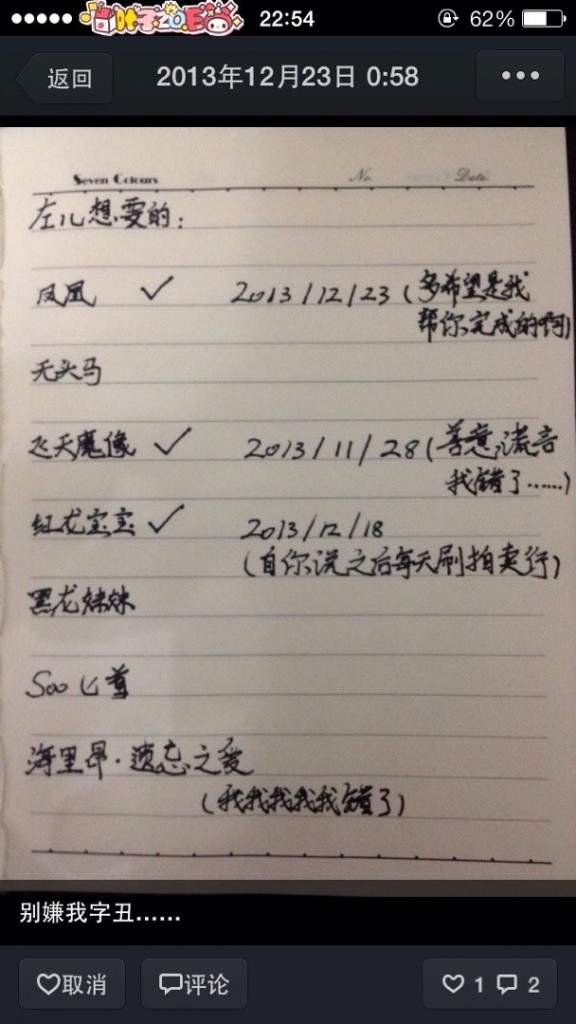 22:54
62%
返回
2013年12月23日 0:58
Seven Colours No. Date.
左儿想要的:
凤凰 ✓ 2013/12/23(多希望是我
帮你完成的啊)
无头马
飞天魔像 ✓ 2013/11/28(善意谎言
我错了……)
红龙宝宝 ✓ 2013/12/18
(自你说之后每天刷拍卖行)
黑龙妹妹
Soo匕首
海里昂·遗忘之爱
(我我我我我错了)
别嫌我字丑……
取消 评论 1 2